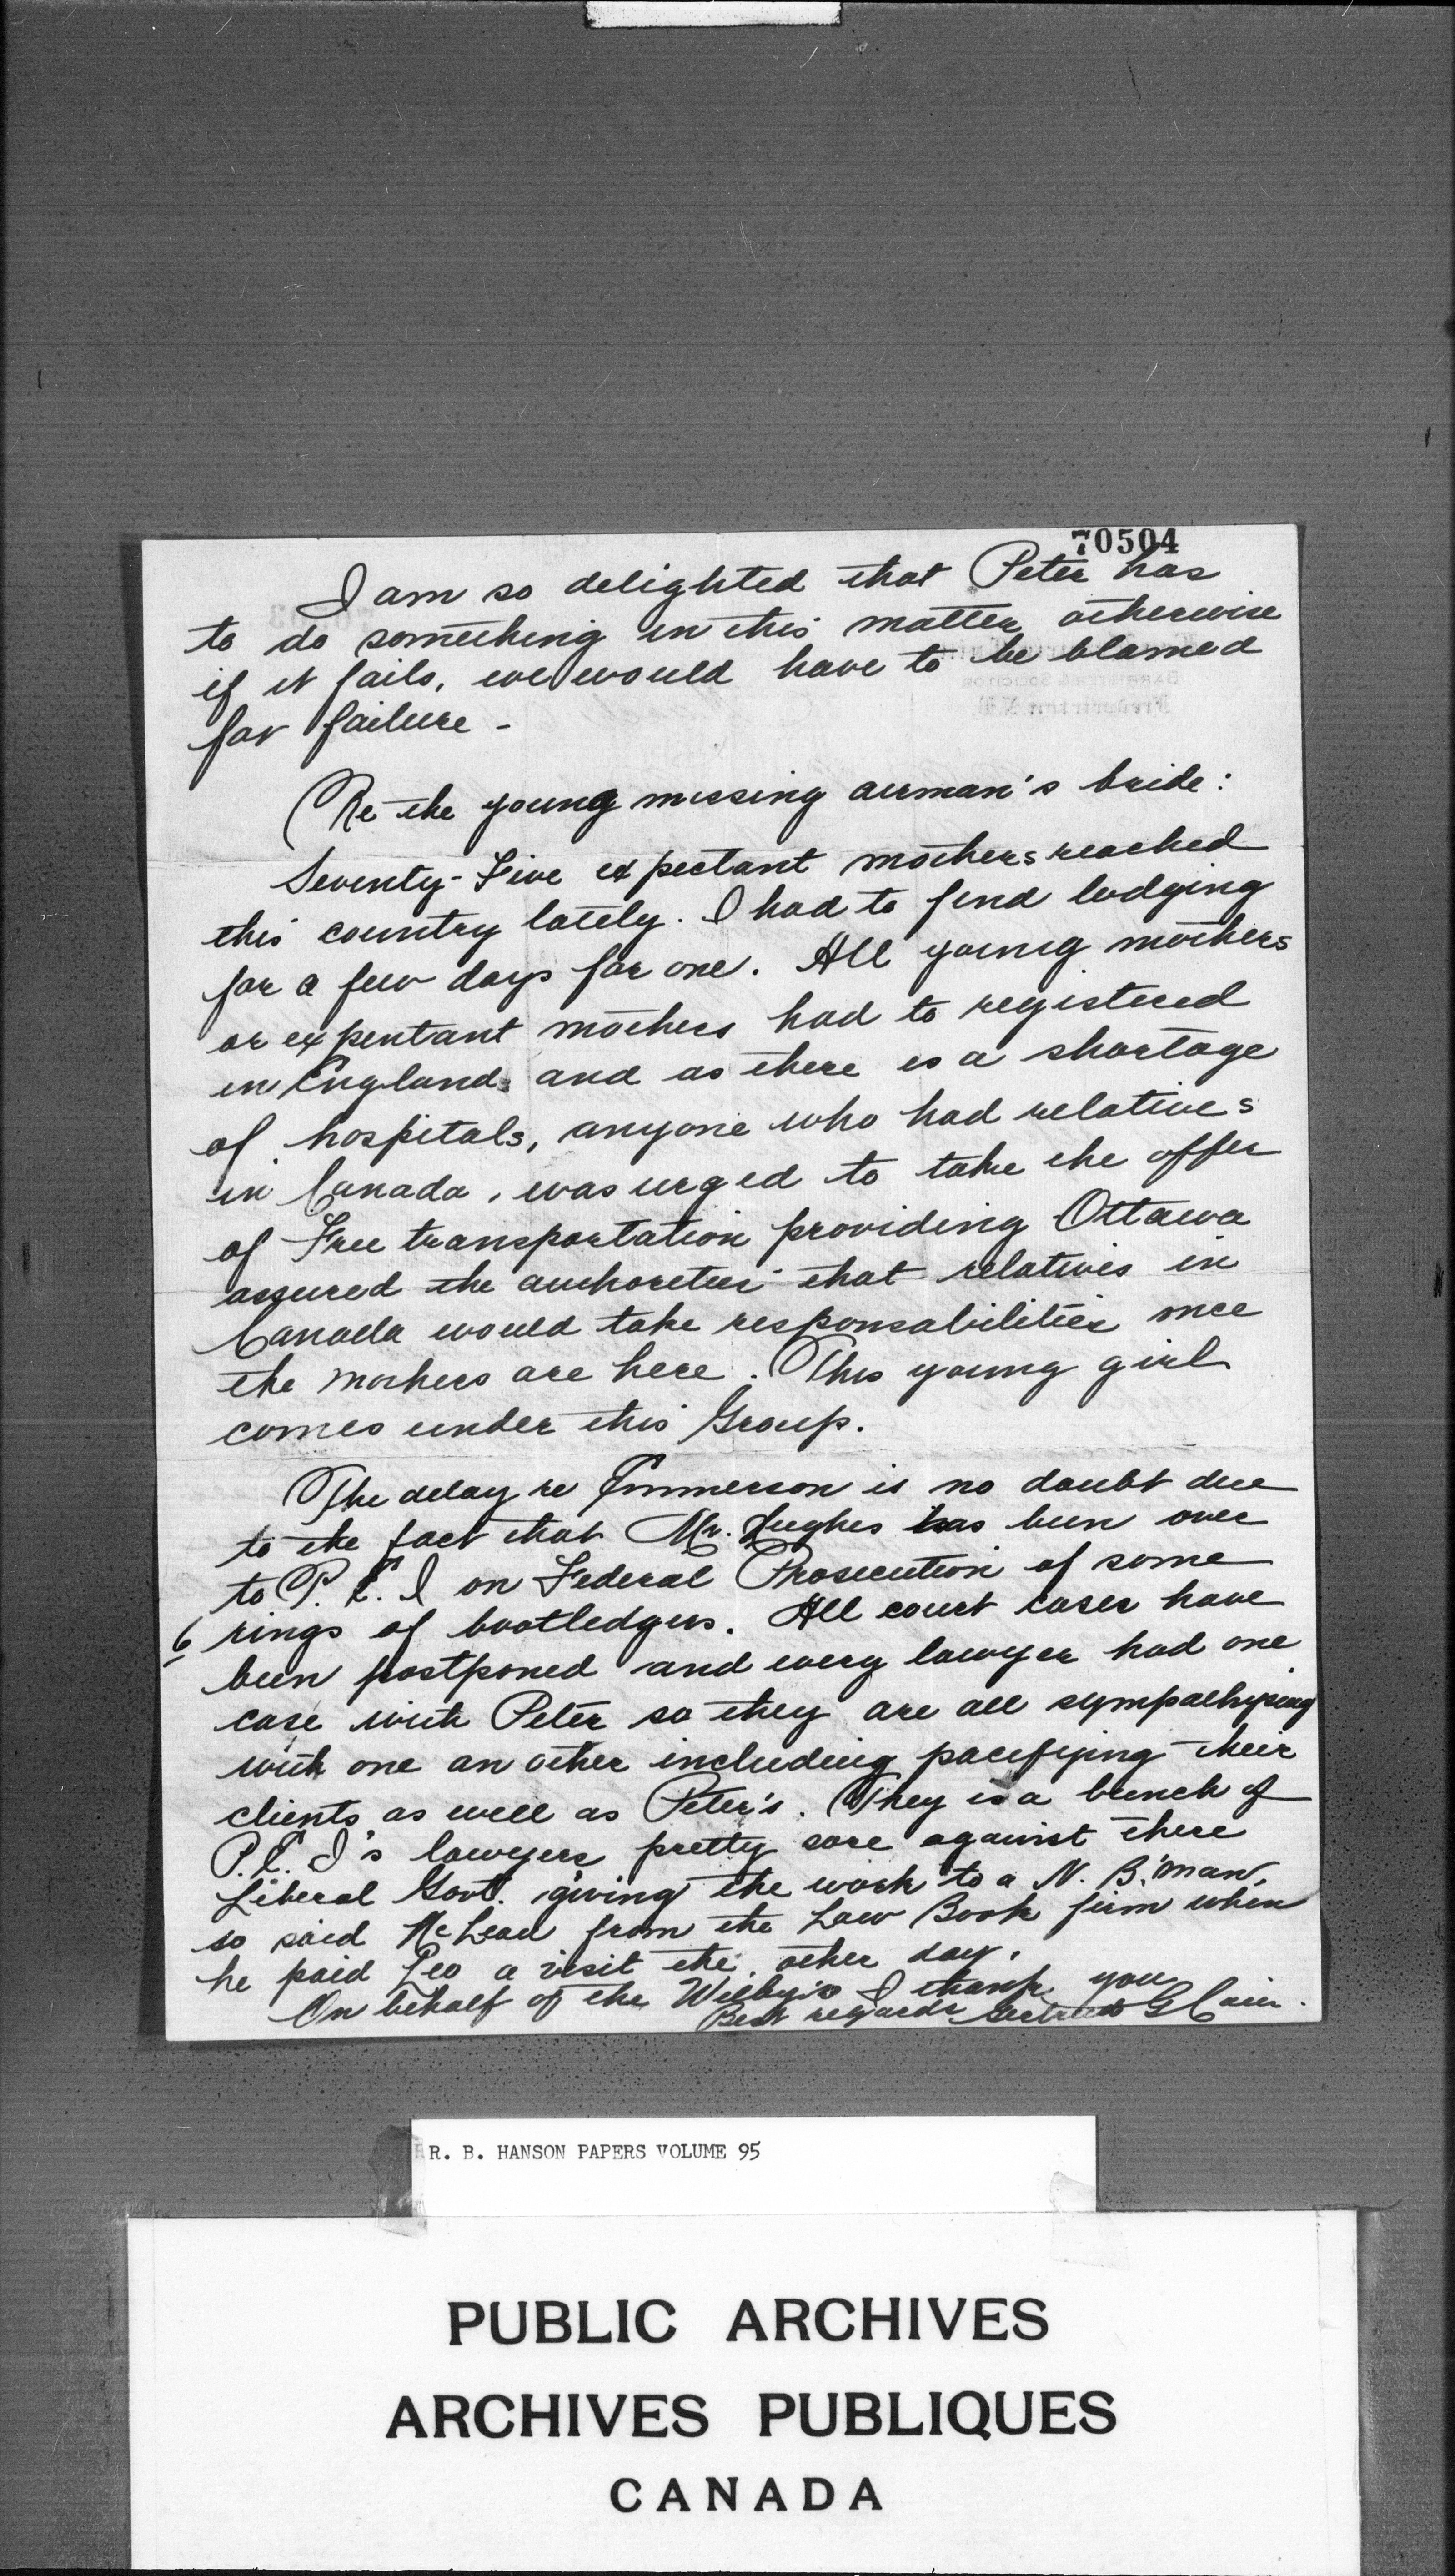 70504
I am so delighted that Peter has
to do something in this matter otherwise
if it fails, we would have to be blamed
for failure -
Re the young missing airman's bride:
Seventy-Five expectant mothers reached
this country lately. I had to find lodging
for a few days for one. All young mothers
or expentant mothers had to registered
in England and as there is a shortage
of hospitals, anyone who had relatives
in Canada, was urged to take the offer
of Free transportation providing Ottawa
assured the authoreties that relatives in
Canada would take responsabilities once
the mothers are here. This young girl
comes under this Group.
The delay re Emmerson is no doubt due
to the fact that Mr. Hughes has been over
to P. E. I on Federal Prosecution of some
6 rings of bootledgers. All court cases have
been postponed and every lawyer had one
case with Peter so they are all sympathysing
with one an other including pacifying their
clients as well as Peter's. They is a bunch of
P. E. I's lawyers pretty sore against there
Liberal Govt. giving the work to a N. B. man,
so said McLead from the Law Book firm when
he paid Leo a visit the other day.
On behalf of the I thank you
Best regards G
BARRISTER & SOLICITOR
Fredericton N.B.
R. B. HANSON PAPERS VOLUME 95
PUBLIC ARCHIVES
ARCHIVES PUBLIQUES
CANADA